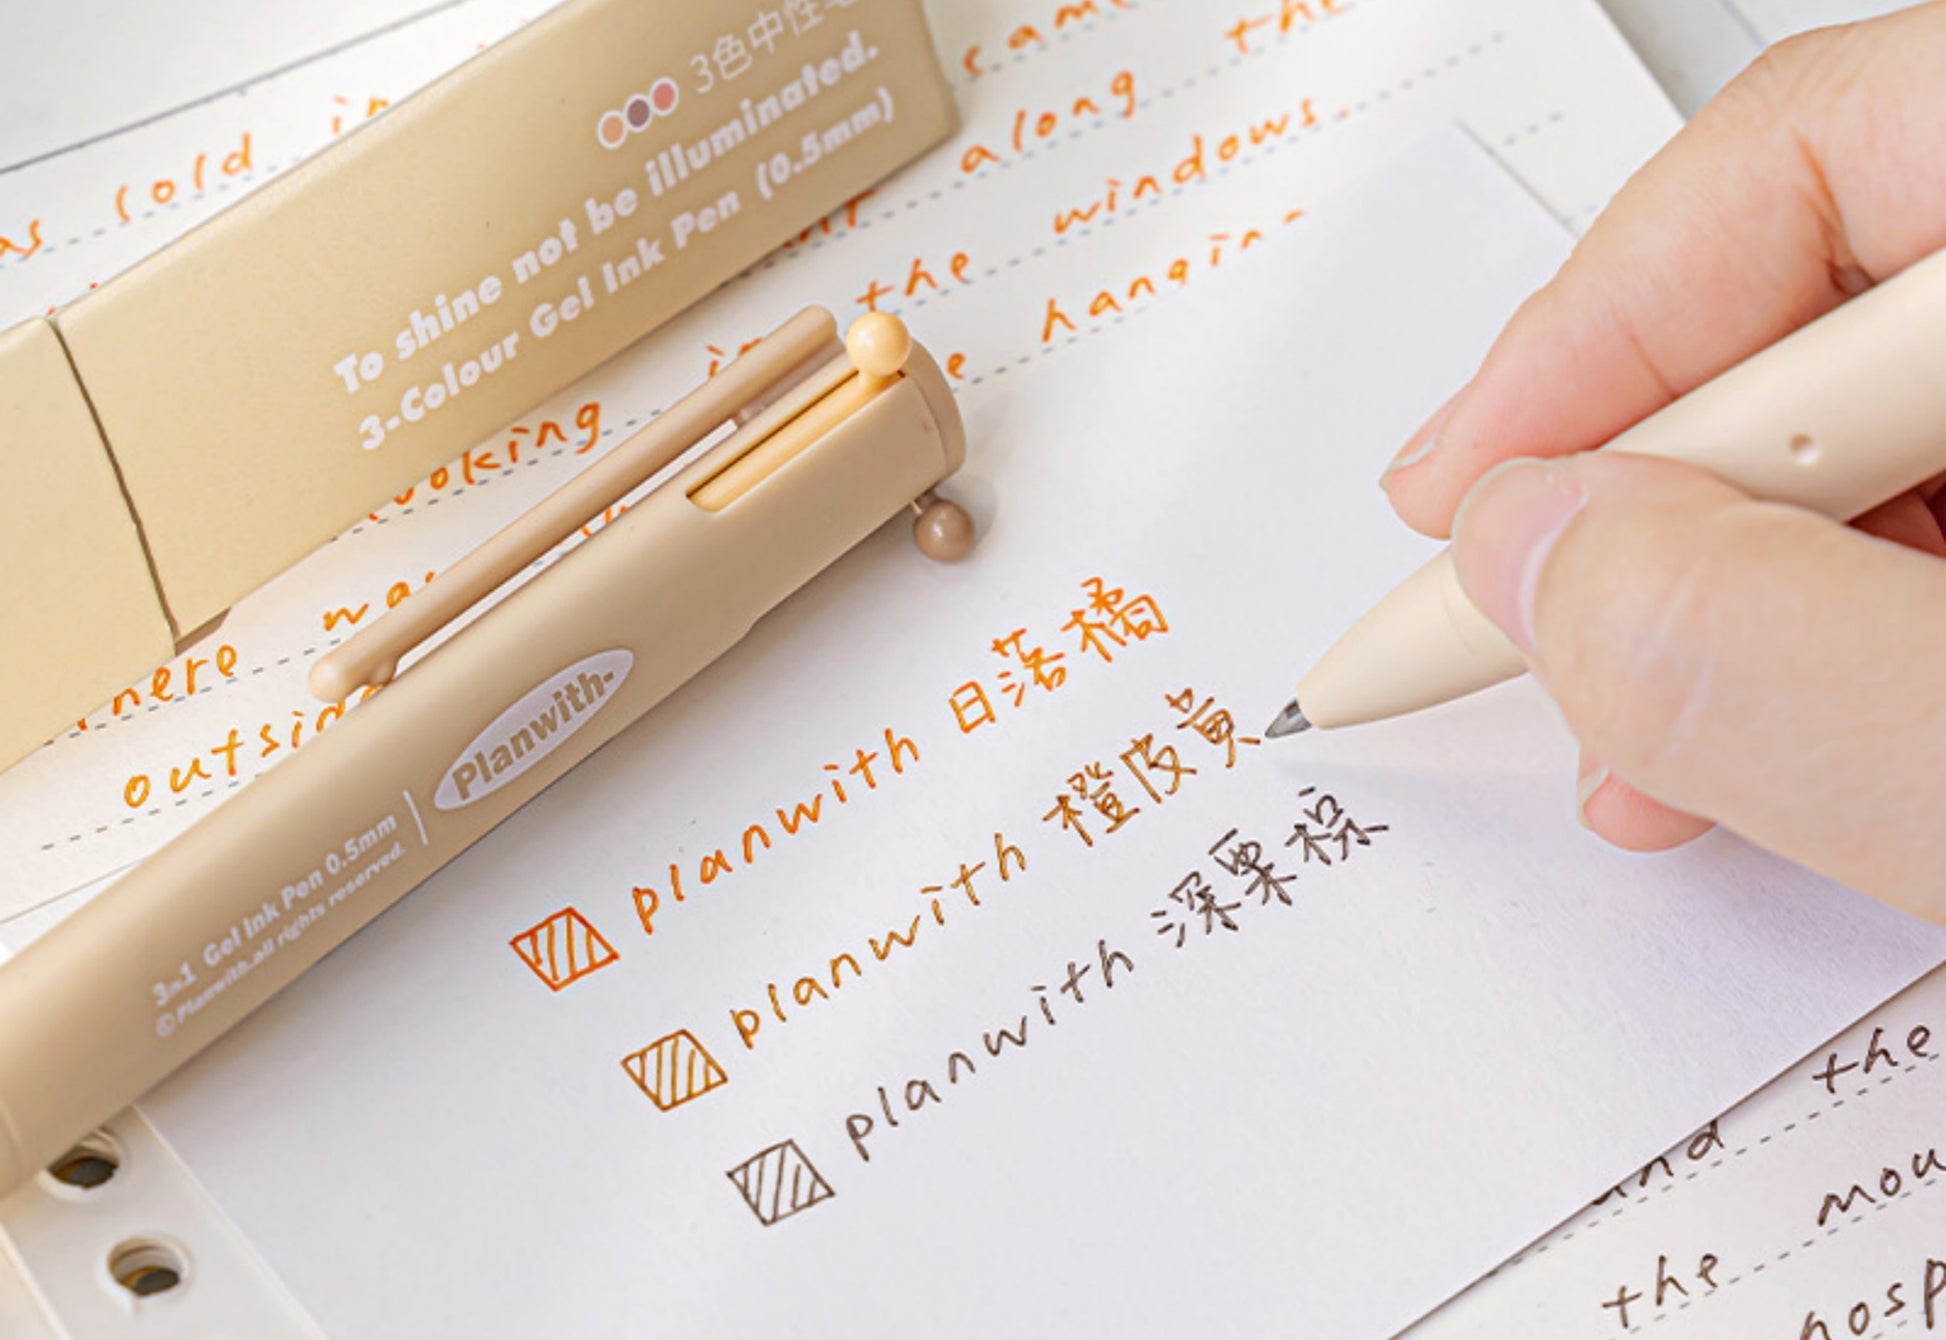 3色中性笔
To shine not be illuminated.
3-Colour Gel Ink Pen (0.5mm)
came
the
along the
cold in
as
the windows
in the hanging
looking
was
here
outside
Planwith-
3in1 Gel Ink Pen 0.5mm
© Planwith.all rights reserved.
planwith 日落橘
planwith 橙皮黄
planwith 深栗棕
the
and
mou
the
hosp